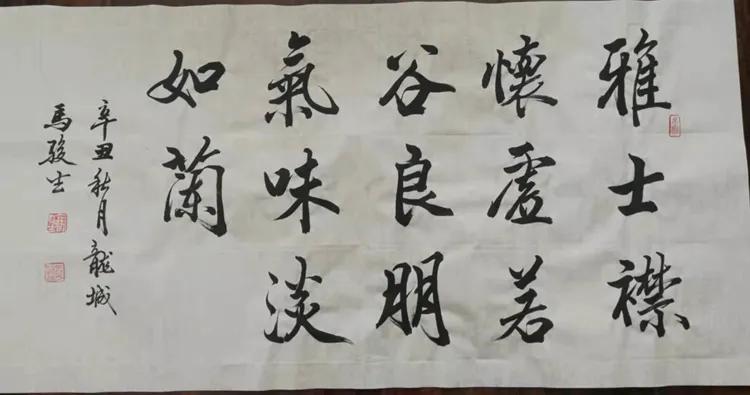 雅士襟
懷虛若
谷良朋
氣味淡
如蘭
辛丑秋月龍城
馬駿生